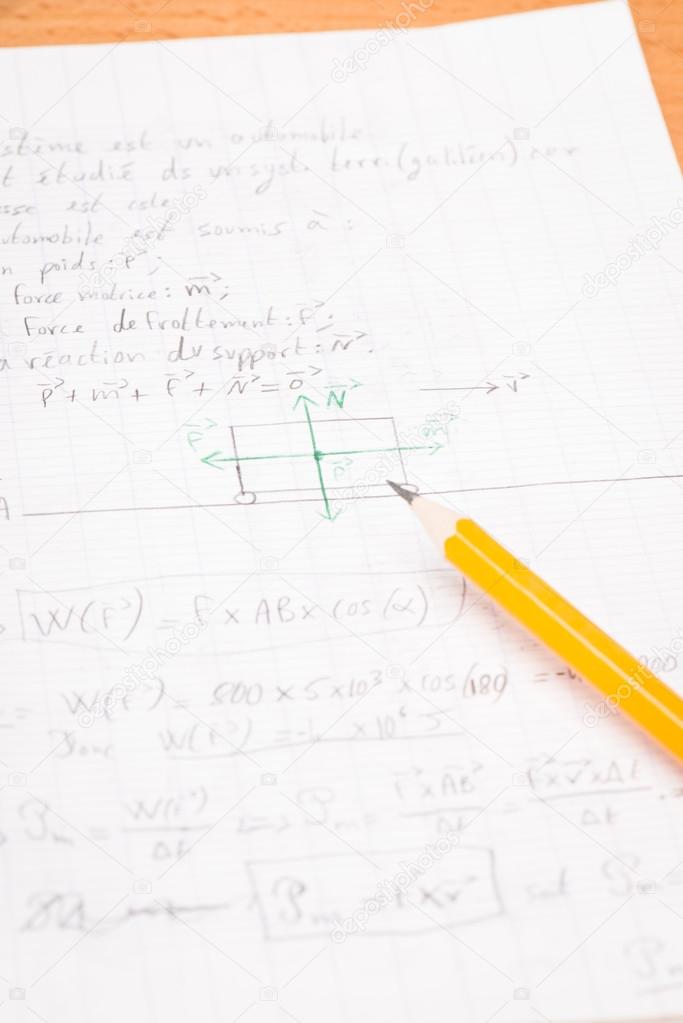 stème est un automobile
t étudié ds un syst. terr. (galiléen) car
esse est cste
utomobile est soumis à :
n poids : P⃗ ;
force motrice : m⃗ ;
Force de frottement : f⃗ ;
a réaction du support : N⃗ .
P⃗ + m⃗ + f⃗ + N⃗ = 0⃗
v⃗
N⃗
f⃗
m⃗
P⃗
A
W(f⃗) = f × AB × cos(α)
= W(f⃗) = 800 × 5×10³ × cos(180) = -4 000
Donc W(f⃗) = -4 × 10⁶ J
Pm = W(f⃗)/Δt ⟺ Pm = f⃗×AB⃗/Δt = f⃗×v⃗×Δt/Δt
Pm = f × v⃗ Pm =
Pm
depositphotos